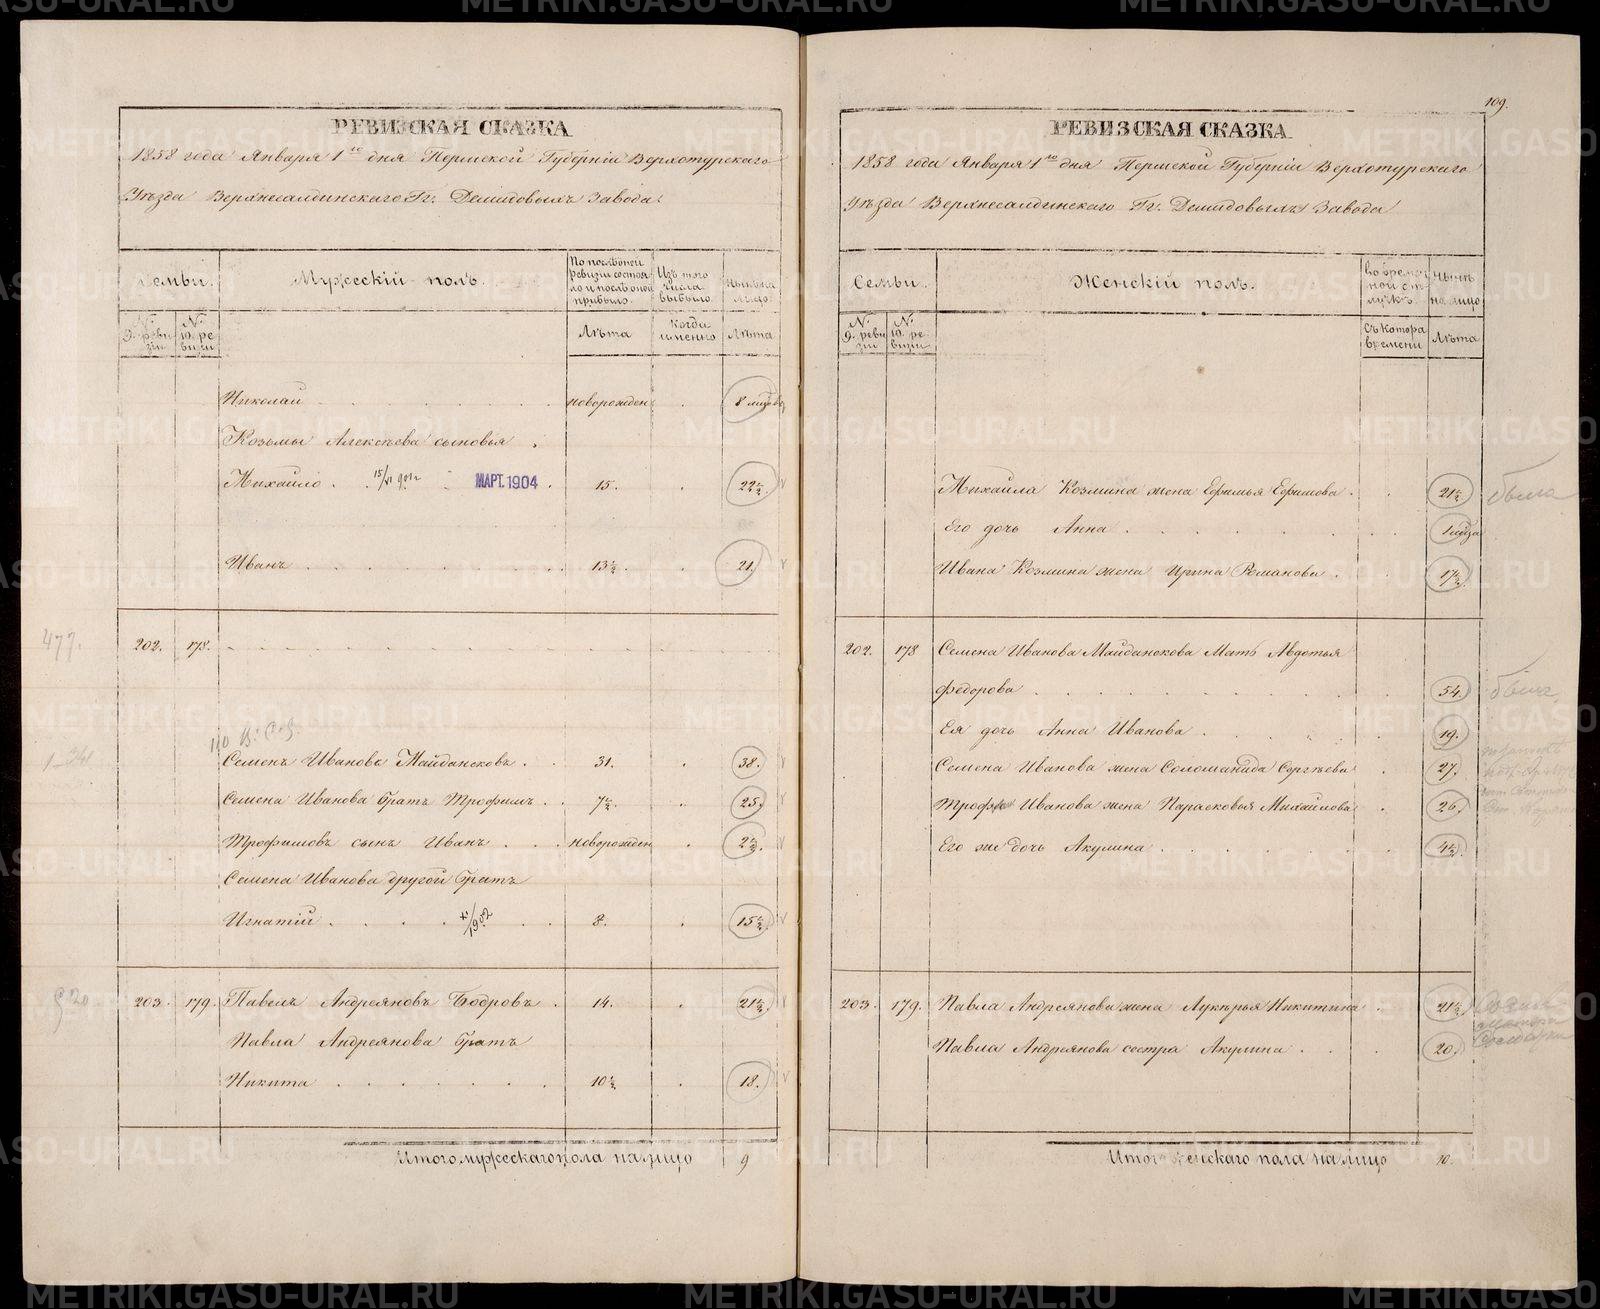 РЕВИЗСКАЯ СКАЗКА
1858 года Января 1го дня Пермской Губерніи Верхотурскаго
Уѣзда Верхнесалдинскаго Гг. Демидовыхъ Завода.
Семьи.
Мужескій полъ.
По послѣдней ревизіи состояло и послѣ оной прибыло.
Изъ того числа выбыло
Нынѣ на лицо
№ 9. ревизіи
№ 10. ревизіи
Лѣта
Когда именно
Лѣта
Николай новорожден 8 мѣсяцов
Козьмы Алексѣева сыновья
Михайло МАРТ.1904 15. 22½
Иванъ 13½ 21.
477.
202. 178.
Семенъ Ивановъ Майданековъ 31. 38.
Семена Иванова братъ Трофимъ 7½ 25.
Трофимовъ сынъ Иванъ новорожден 2½
Семена Иванова другой братъ
Игнатій 8. 15½
203. 179. Павелъ Андреяновъ Бодровъ 14. 21½
Павла Андреянова братъ
Никита 10½ 18.
Итого мужескаго пола на лицо 9
109.
РЕВИЗСКАЯ СКАЗКА
1858 года Января 1го дня Пермской Губерніи Верхотурскаго
Уѣзда Верхнесалдинскаго Гг. Демидовыхъ Завода
Семьи.
Женскій полъ.
Во временной отлучкѣ.
Нынѣ на лицо
№ 9. ревизіи
№ 10. ревизіи
Съ котора времени
Лѣта
Михайла Козмина жена Ефимья Ефимова 21½
Его дочь Анна
Ивана Козмина жена Ирина Романова 17½
202. 178 Семена Иванова Майданекова Мать Авдотья
Федорова 54.
Ея дочь Анна Иванова 19.
Семена Иванова жена Соломанида Сергѣева 27.
Иванова жена Парасковья Михайлова 26.
Его же дочь Акулина 4½
203. 179. Павла Андреянова жена Лукерья Никитина 21½
Павла Андреянова сестра Акулина 20.
Итого женскаго пола на лицо 10.
METRIKI.GASO-URAL.RU